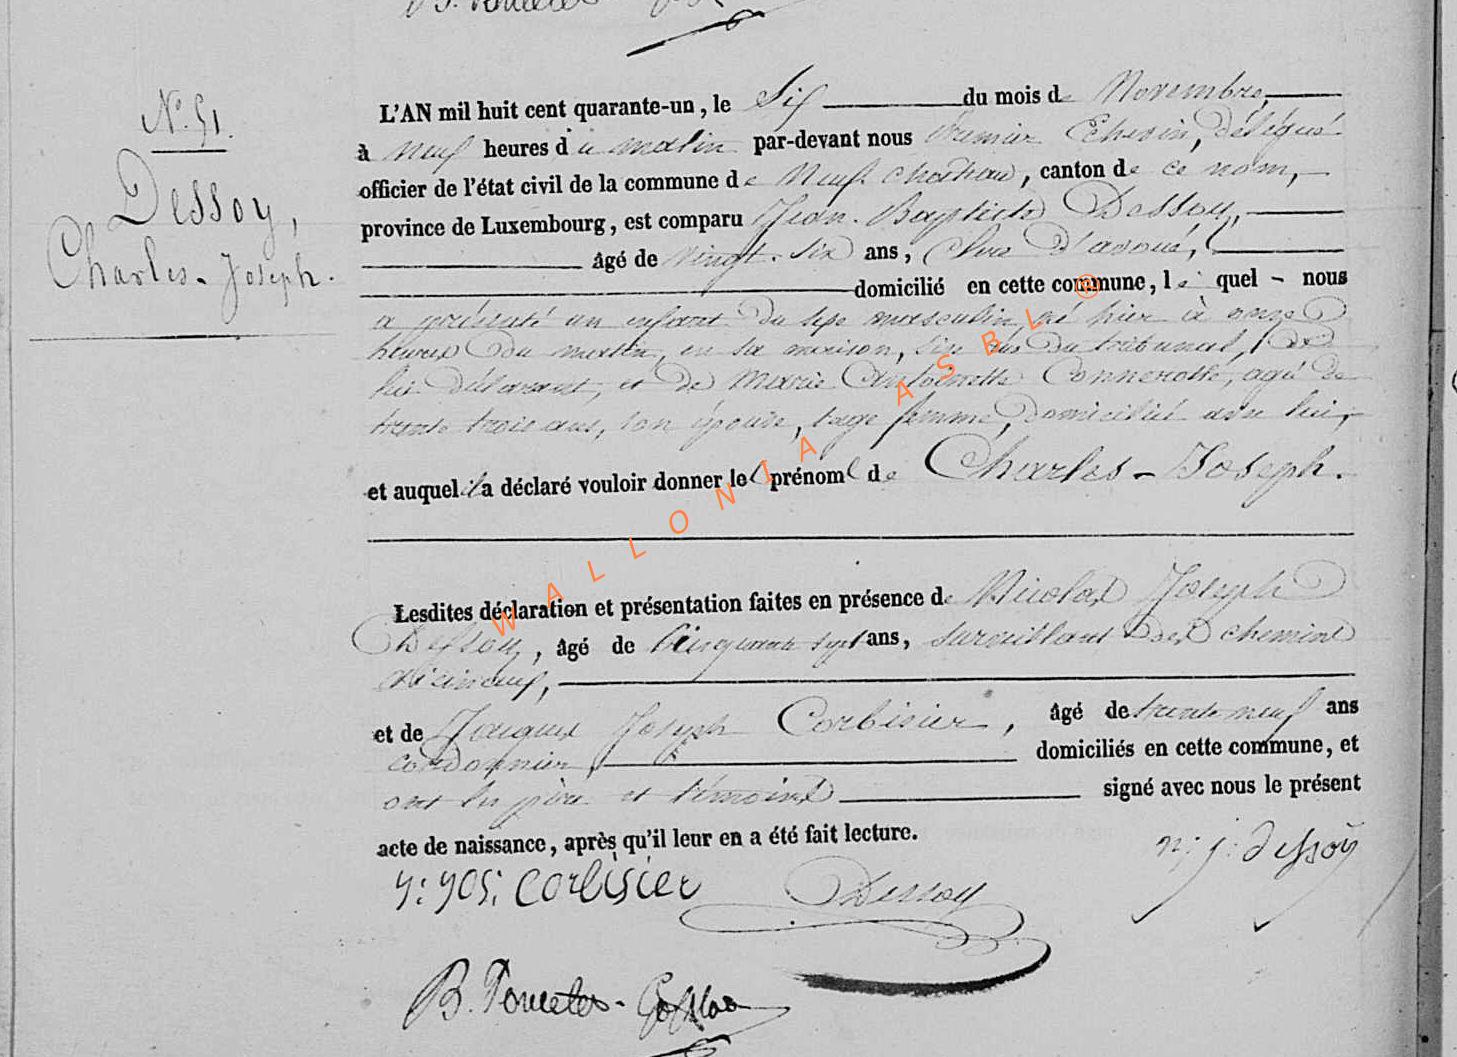 N° 51.
Dessoy,
Charles-Joseph.
L'AN mil huit cent quarante-un, le Six du mois de Novembre,
à neuf heures du matin par-devant nous Premier Echevin, délégué
officier de l'état civil de la commune de Neufchateau, canton de ce nom,
province de Luxembourg, est comparu Jean-Baptiste Dessoy,
âgé de vingt-six ans, Clerc d'avoué,
domicilié en cette commune, lequel nous
a présenté un enfant du sexe masculin, né hier à onze
heures du matin, en sa maison, du tribunal, de
lui déclarant, et de Marie Antoinette Connerotte, agée de
trente trois ans, son épouse, sage femme, domiciliée avec lui,
et auquel il a déclaré vouloir donner les prénoms de Charles-Joseph.
Lesdites déclaration et présentation faites en présence de Nicolas Joseph
Dessoy, âgé de Cinquante sept ans, surveillant des chemins
vicinaux,
et de Jacques Joseph Corbisier, âgé de trente neuf ans
cordonnier, domiciliés en cette commune, et
ont les père et témoins signé avec nous le présent
acte de naissance, après qu'il leur en a été fait lecture.
n: j: dessoy
j: jos: corbisier Dessoy
B. Poncelet-
WALLONIA ASBL ®